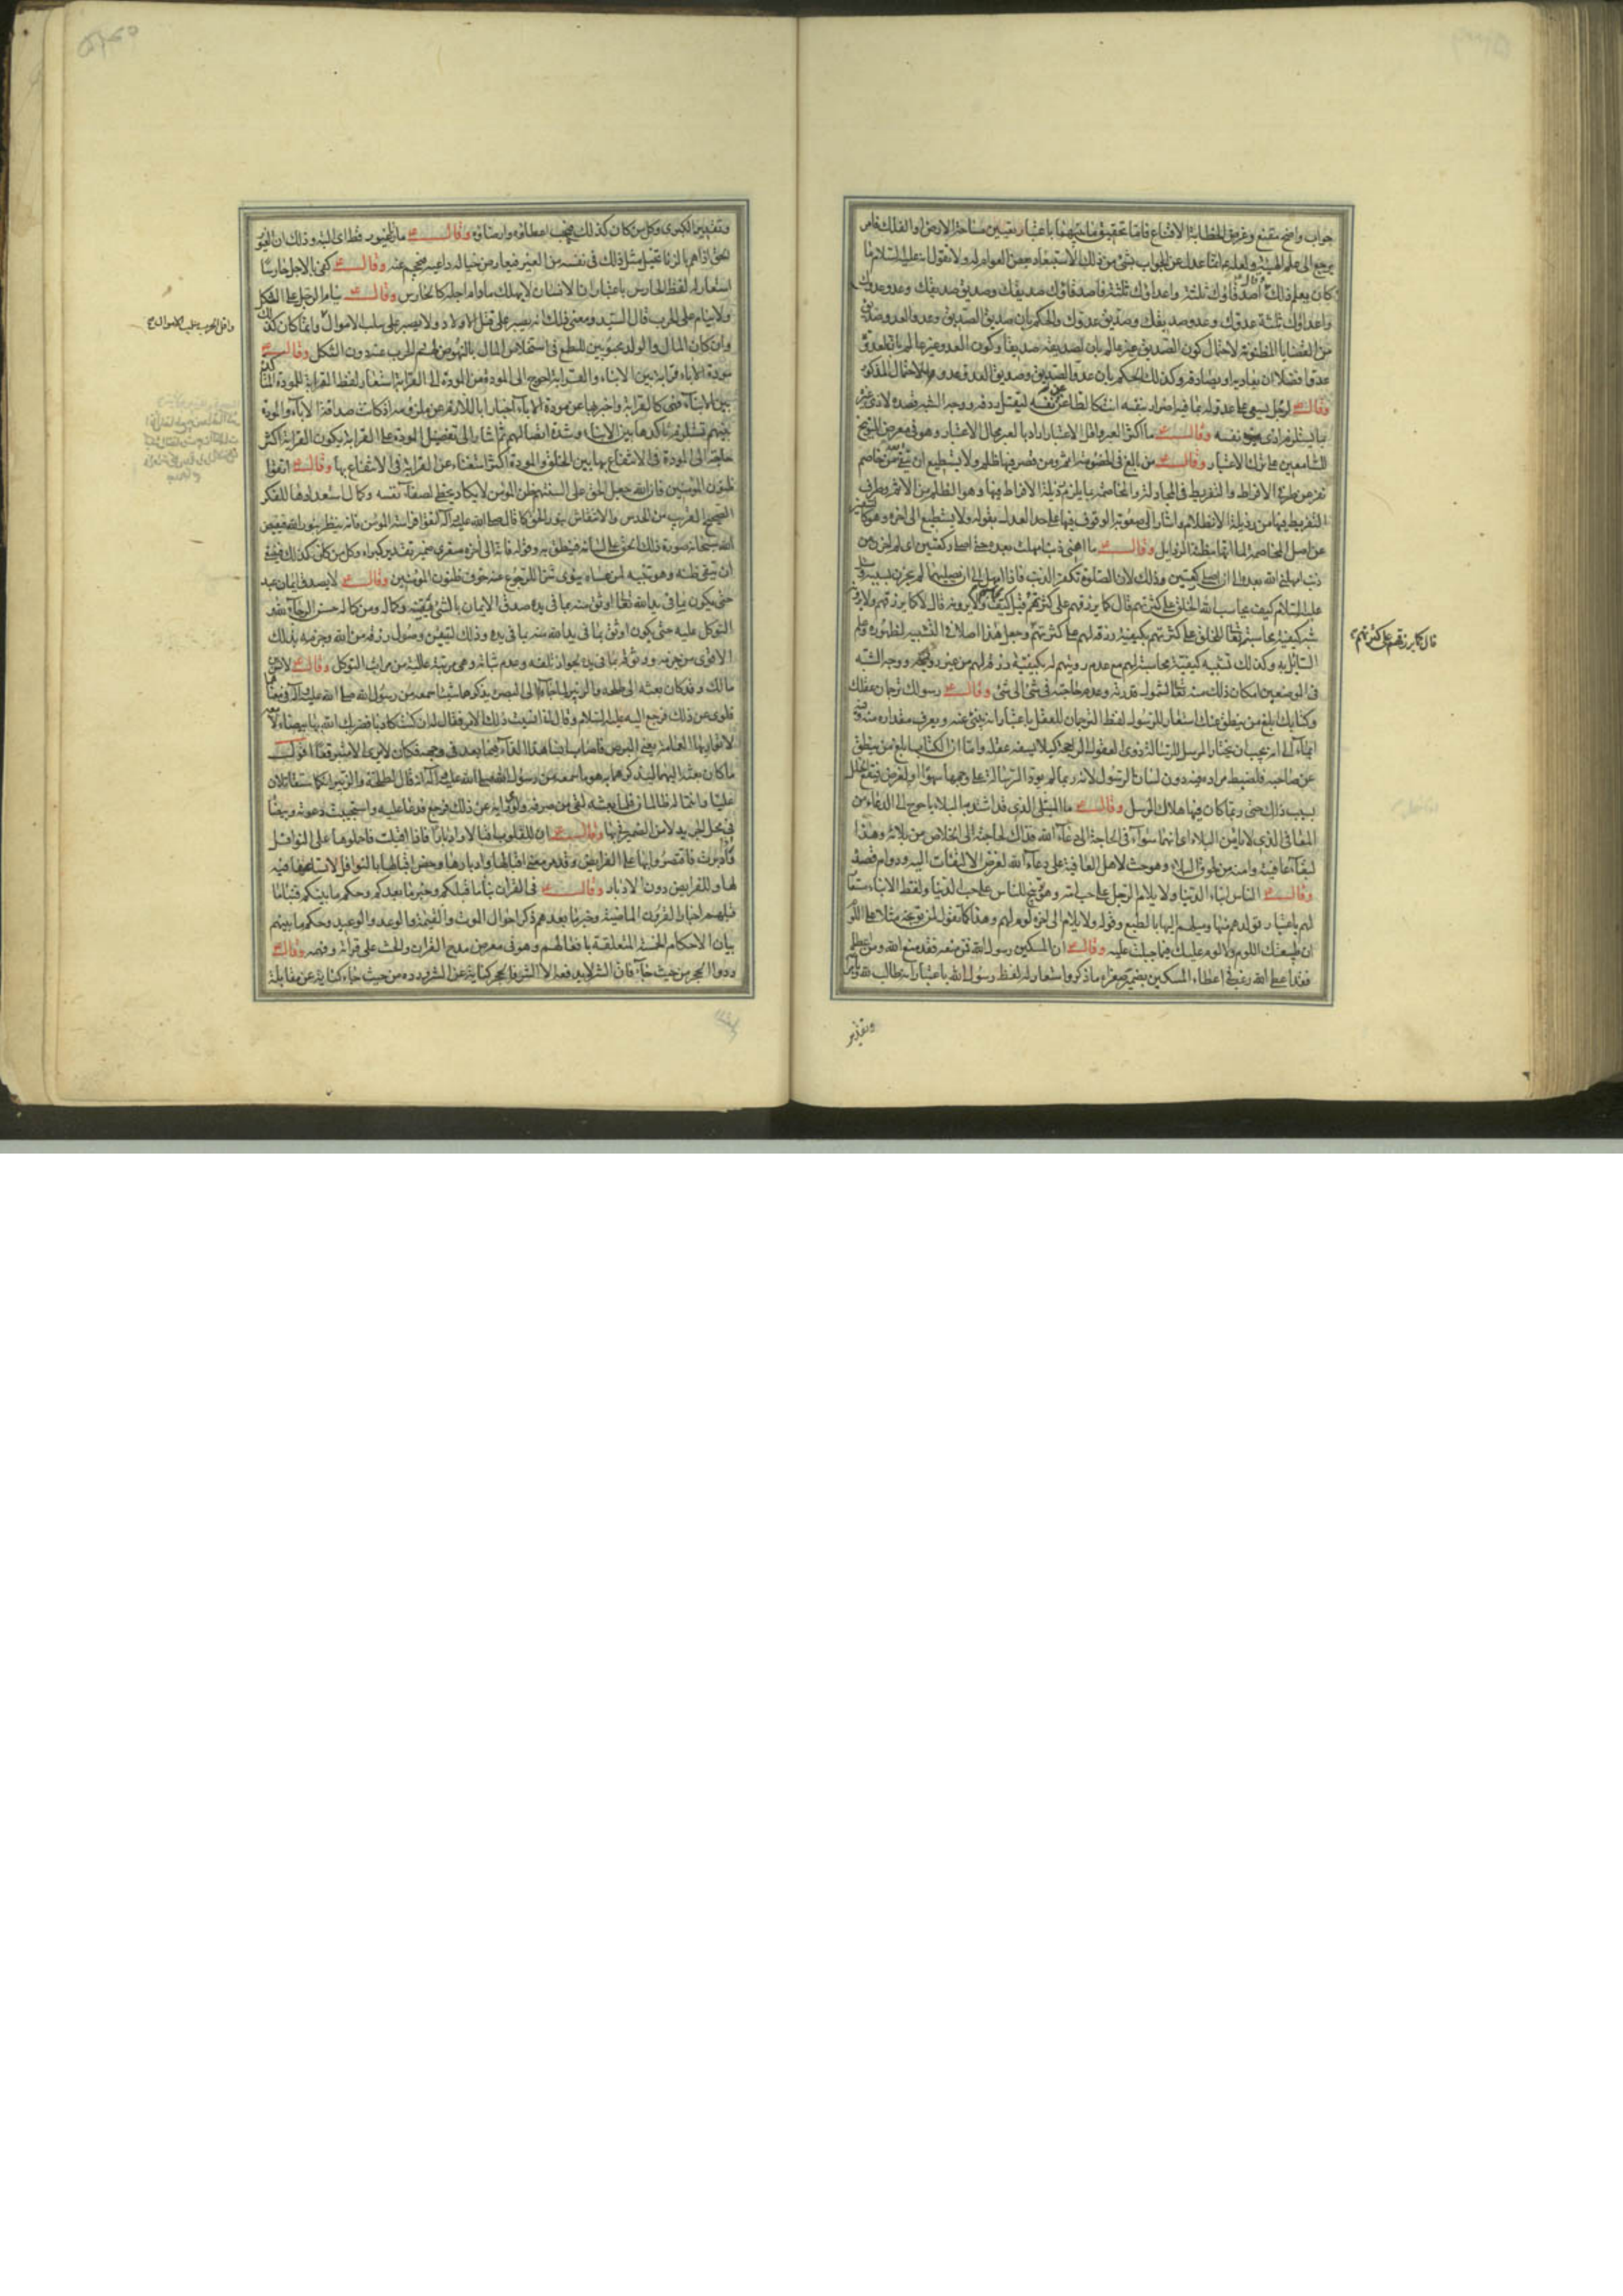 جواب واضح مقنع وغرض الخطابة الاقناع فاما تحقيق ما بينهما باعتبار تعيين مساحة الارض والفلك فامر
يرجع الى علم الهيئة ولعله انما عدل عن الجواب بشئ من ذلك لاستبعاد بعض العوام له ولا نقول انه عليه السلام ما
كان يعلم ذلك اصدقاؤك ثلثة واعداؤك ثلثة فاصدقاؤك صديقك وصديق صديقك وعدو عدوك
واعداؤك ثلثة عدوك وعدو صديقك وصديق عدوك والحكم بان صديق الصديق وعدو العدو صديق
من القضايا المظنونة لاحتمال كون الصديق غير عالم بان لصديقه صديقا وكون العدو غير عالم بان لعدوه
عدوا فضلا ان يعاديه او يصادقه وكذلك الحكم بان عدو الصديق وصديق العدو عدو للاحتمال المذكور
وقال ع لرجل يسعى على عدو له بما فيه اضرار بنفسه انت كالطاعن نفسه ليقتل ردفه ووجه الشبه قصده لاذى غيره
بما يستلزم اذى نفسه وقال ع ما اكثر العبر واقل الاعتبار اراد بالعبر محال الاعتبار وهو في معرض التوبيخ
للسامعين على ترك الاعتبار وقال ع من بالغ في الخصومة اثم ومن قصر فيها ظلم ولا يستطيع ان يتقي الله من خاصم
نفر عن طرفي الافراط والتفريط في المجادلة والمخاصمة بما يلزم رذيلة الافراط فيها وهو الظلم من الاثم وطرف
التفريط فيها من رذيلة الانظلام واشار الى صعوبة الوقوف فيها على حد العدل بقوله ولا يستطيع الى اخره وهو
عن اصل المخاصمة لما انها مظنة الرذايل وقال ع ما اهمني ذنب امهلت بعده حتى اصلي ركعتين اي لم احزن من
ذنب امهلني الله بعده الى ان اصلي ركعتين وذلك لان الصلوة تكفر الذنب فاذا امهل الى ان يصليهما لم يحزن بسببه وسئل
عليه السلام كيف يحاسب الله الخلق على كثرتهم قال كما يرزقهم على كثرتهم قيل كيف يحاسبهم ولا يرونه قال كما يرزقهم ولا يرونه
شبه كيفية محاسبته تعالى للخلق على كثرتهم بكيفية رزقه لهم على كثرتهم وجعل هذا اصلا في التشبيه لظهوره وعلم
السائل به وكذلك تشبيه كيفية محاسبته لهم مع عدم رويتهم له بكيفية رزقه لهم من غير رويته ووجه الشبه
في الموضعين امكان ذلك منه تعالى لشمول قدرته وعدم حاجته في شئ الى شئ وقال ع رسولك ترجمان عقلك
وكتابك ابلغ من ينطق عنك استعار للرسول لفظ الترجمان للعقل باعتبار انه ينبئ عنه ويعرف مقداره منه وفيه
ايماء الى انه يجب ان يختار المرسل للرسالة ذوي العقول الراجحة كيلا يسفه عقله واما ان الكتاب ابلغ من ينطق
عن صاحبه فلضبط مراده فيه دون لسان الرسول لانه ربما لم يؤد الرسالة على وجهها سهوا او لغرض فيقع الخلل
بسبب ذلك حتى ربما كان فيها هلاك المرسل وقال ع ما المبتلى الذي قد اشتد به البلاء باحوج الى الدعاء من
المعافى الذي لا يامن البلاء اعلم انهما سواء في الحاجة الى دعاء الله فذاك لحاجته الى الخلاص من بلائه وهذا
لبقاء عافيته وامنه من طروق البلاء وهو حث لاهل العافية على دعاء الله لغرض الالتفات اليه ودوام قصده
وقال ع الناس ابناء الدنيا ولا يلام الرجل على حب امه وهو توبيخ للناس على حب الدنيا ولفظ الابناء مستعار
لهم باعتبار تولدهم منها وميلهم اليها بالطبع وقوله ولا يلام الى اخره لوم لهم وهذا كما تقول لمن توبخه مثلا على اللوم
ان طبيعتك اللوم ولا لوم عليك فيما جبلت عليه وقال ع ان المسكين رسول الله فمن منعه فقد منع الله ومن اعطاه
فقد اعطى الله رغب في اعطاء المسكين بضميره صغراه ما ذكر واستعار له لفظ رسول الله باعتبار انه طالب
قال كما يرزقهم على كثرتهم
وتقدير
وتقدير الكبرى وكل من كان كذلك فيجب اعطاؤه وارضاؤه وقال ع ما زنى غيور قط اى البته وذلك ان الغيور
الحق اذا هم بالزنا تخيل مثل ذلك في نفسه من الغير فيعارض خياله داعيه فيحجم عنه وقال ع كفى بالاجل حارسا
استعار له لفظ الحارس باعتبار ان الانسان لا يهلك ما دام اجله كالحارس وقال ع ينام الرجل على الثكل
ولا ينام على الحرب قال السيد ومعنى ذلك انه يصبر على قتل الاولاد ولا يصبر على سلب الاموال وانما كان كذلك
وان كان المال والولد محبوبين للطمع في استخلاص المال بالنهوض لهم الحرب عنه دون الثكل وقال ع
مودة الاباء قرابة بين الابناء والقرابة احوج الى المودة من المودة الى القرابة استعار لفظ القرابة للمودة
بين الابناء فهي كالقرابة واخبر بها عن مودة الآباء اخبارا باللازم عن ملزومه اذ كانت صداقة الاباء والمودة
بينهم تستلزم تاكدها بين الابناء وشدة اتصالهم ثم اشار الى تفضيل المودة على القرابة بكون القرابة اكثر
حاجة الى المودة في الانتفاع بها بين الخلق والمودة اكثر استغناء عن القرابة في الانتفاع بها وقال ع اتقوا
ظنون المؤمنين فان الله جعل الحق على السنتهم ظن المؤمن لا يكاد يخطي لصفاء نفسه وكمال استعدادها للفكر
الصحيح القريب من الحدس والانتقاش بنور الحق كما قال صلى الله عليه وآله اتقوا فراسة المؤمن فانه ينظر بنور الله فيفيض
الله سبحانه صورة ذلك الحق على لسانه فينطق به وقوله فان الى آخره صغرى ضمير تقدير كبراه وكل من كان كذلك فينبغي
ان يتقى ظنه وهو تنبيه لمن عساه ينوى شرا للرجوع عنه خوف ظنون المؤمنين وقال ع لا يصدق ايمان عبد
حتى يكون بما في يد الله تعالى اوثق منه بما في يده صدق الايمان بالشئ يقينه وكماله ومن كماله حسن الرجاء لله و
التوكل عليه حتى يكون اوثق بما في يد الله منه بما في يده وذلك لتيقن وصول رزقه من الله وجزمه بذلك
الاقوى من جزمه ووثوقه بما في يده لجواز تلفه وعدم ثباته وهي مرتبة عالية من مراتب التوكل وقال ع لانس بن
مالك وقد كان بعثه الى طلحة والزبير لما جاءا الى البصرة يذكرهما شيئا سمعه من رسول الله صلى الله عليه وآله في معناهما
فلوى عن ذلك فرجع اليه عليه السلام وقال اني انسيت ذلك الامر فقال له ان كنت كاذبا فضربك الله بها بيضاء لامعة
لا تواريها العمامة يعنى البرص فاصاب انسا هذا الداء فيما بعد في وجهه فكان لا يرى الا متبرقعا اقول
ما كان بعثه اليهما ليذكرهما به هو ما سمعه من رسول الله صلى الله عليه وآله انه قال لطلحة والزبير انكما ستقاتلان
عليا وانتما له ظالمان فلما بعثه لقى من صرفه ولواه عن ذلك فرجع فدعا عليه واستجيبت دعوته وبيضاء
في محل الجر بدلا من الضمير في بها وقال ع ان للقلوب اقبالا وادبارا فاذا اقبلت فاحملوها على النوافل
واذا ادبرت فاقتصروا بها على الفرايض وقد مر معنى اقبالها وادبارها وخص اقبالها بالنوافل لاتساعها فيه
لها وللفرايض دون الادبار وقال ع في القران نبا ما قبلكم وخبر ما بعدكم وحكم ما بينكم فنبا ما
قبلهم اخبار القرون الماضية وخبر ما بعدهم ذكر احوال الموت والقيمة والوعد والوعيد وحكم ما بينهم
بيان الاحكام الخمسة المتعلقة بافعالهم وهو في معرض مدح القران والحث على قراته وفهمه وقال ع
ردوا الحجر من حيث جاء فان الشر لا يدفعه الا الشر فالحجر كناية عن الشر ورده من حيث جاء كناية عن مقابلة